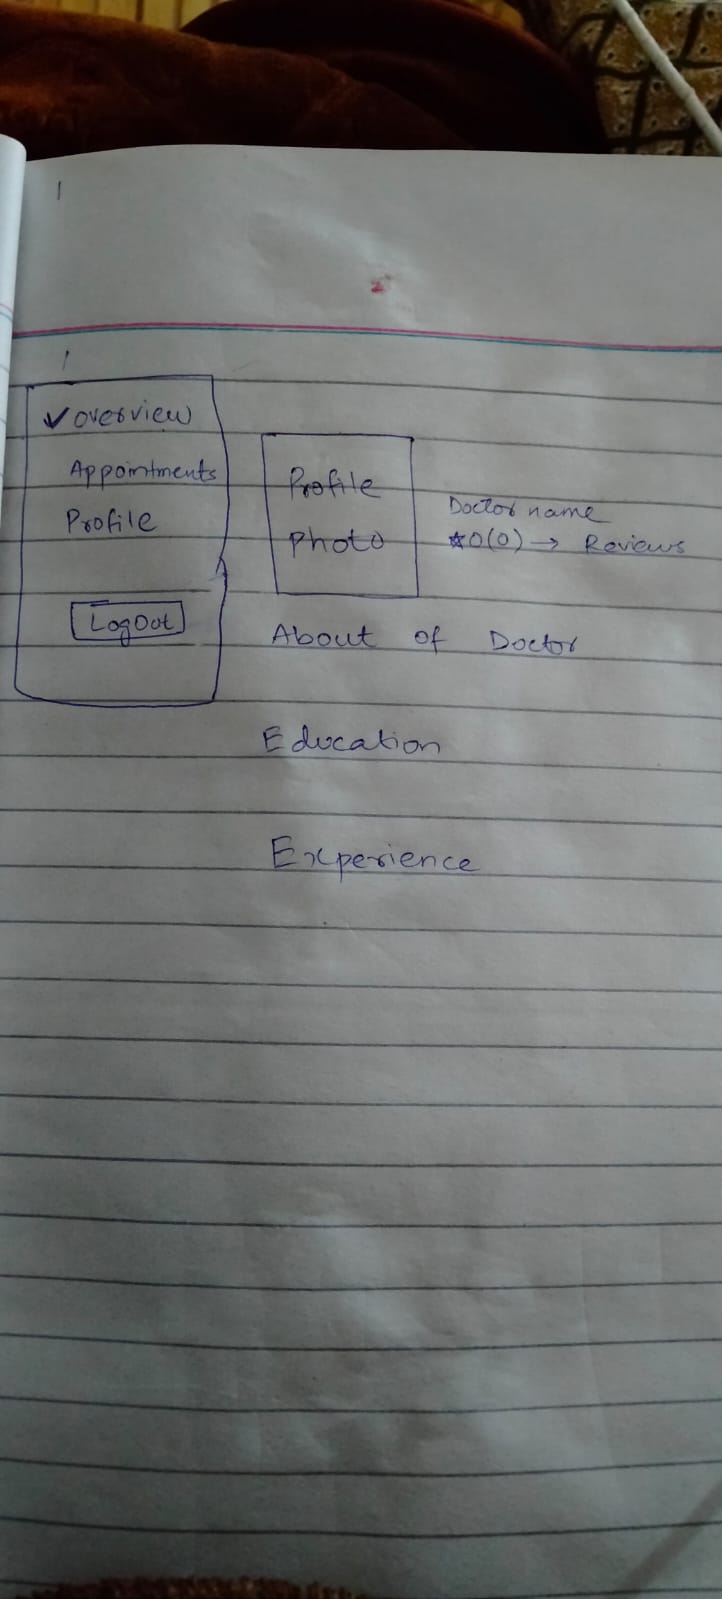 ✓ overview
Appointments
Profile
LogOut
Profile
Photo
Doctor name
★0(0) → Reviews
About of Doctor
Education
Experience